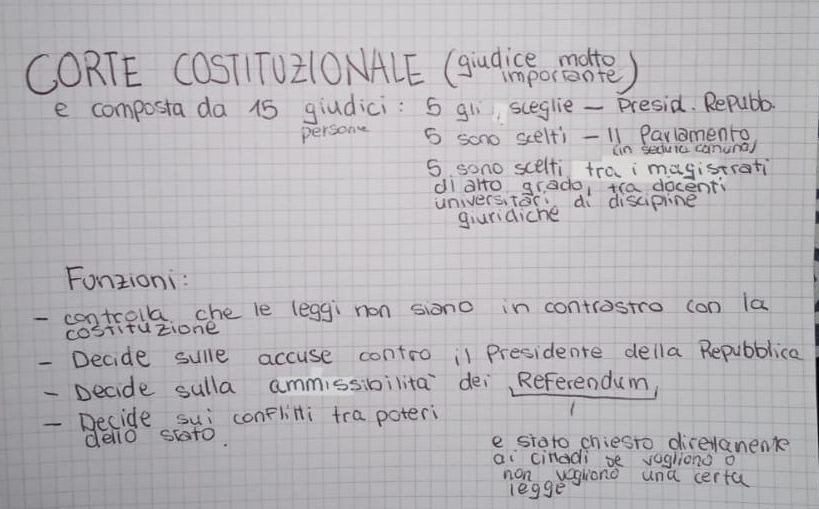 CORTE COSTITUZIONALE (giudice molto
importante)
e composta da 15 giudici : 5 gli sceglie – Presid. Repubb.
persone
5 sono scelti – Il Parlamento
(in seduta comune)
5 sono scelti tra i magistrati
di alto grado, tra docenti
universitari di discipline
giuridiche
Funzioni:
– controlla che le leggi non siano in contrastro con la
costituzione
– Decide sulle accuse contro il Presidente della Repubblica
– Decide sulla ammissibilità dei Referendum
– Decide sui conflitti tra poteri
dello stato.
e stato chiesto direttamente
ai cittadi se vogliono o
non vogliono una certa
legge